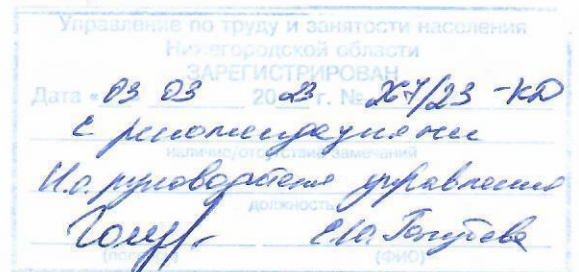 Управление по труду и занятости населения
Нижегородской области
ЗАРЕГИСТРИРОВАН
Дата « 03 03 2023 г. № 267/23 -КД
с рекомендациями
наличие/отсутствие замечаний
И.о. руководителя управления
должность
(подпись) (ФИО)